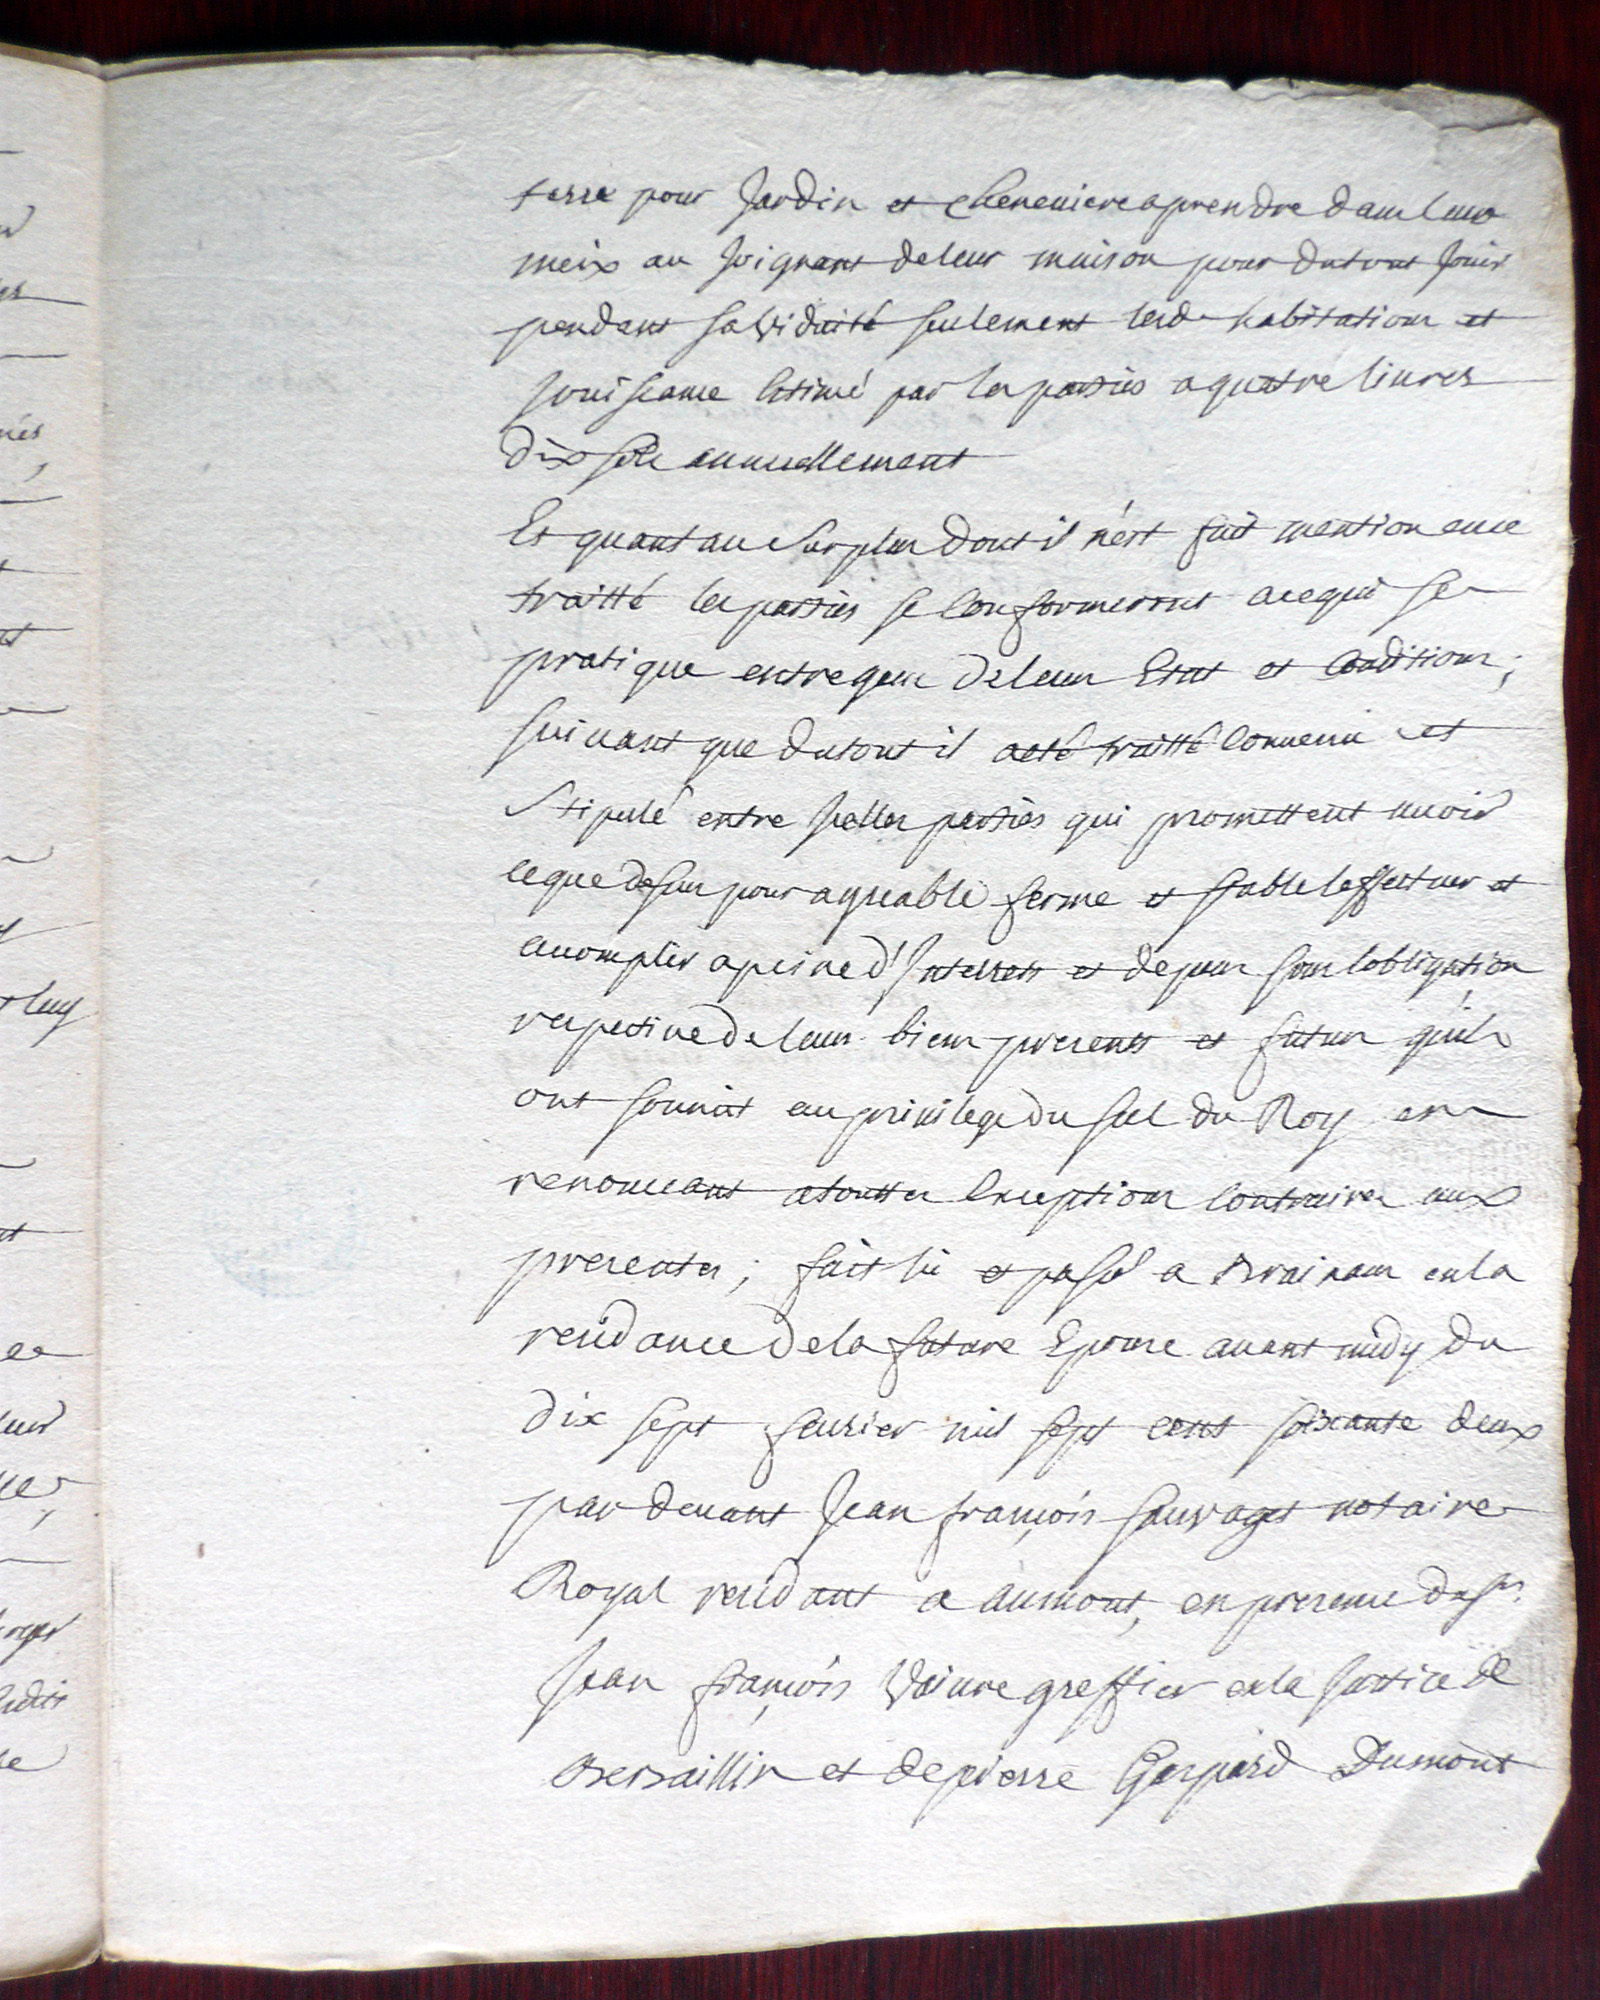 terre pour Jardin et cheneviere a prendre dans leurs
meix au Joignant de leur maison pour du tout Jouir
pendant sa viduité seulement lesd. habitation et
Jouissance Estimé par les parties a quatre livres
dix sols annuellement
Et quant au surplus dont il n'est fait mention en ce
traitté les parties se Conformeront a ce qui se
pratique entre gens de leurs Etat et Conditions;
suivant que du tout il a eté traitté Convenu et
Stipulé entre Icelles parties qui promettent avoir
ce que dessus pour agreable ferme et stable l'effectuer et
accomplir a peine d'Interrets et depens sous l'obligation
respective de leurs biens presents et futurs qu'ils
ont soumit au privilege du scel du Roy en
renonceant a touttes Exceptions Contraires aux
presentes; fait lu et passé a Brainans en la
residance de la future Epouse avant midy du
dix sept feuvrier mil sept cent soixante deux
par devant Jean françois Sauvaget notaire
Royal residant a aumont, en presence du sr.
Jean françois Vaivre greffier en la Justice de
Bersaillin et de pierre Gaspard Dumont